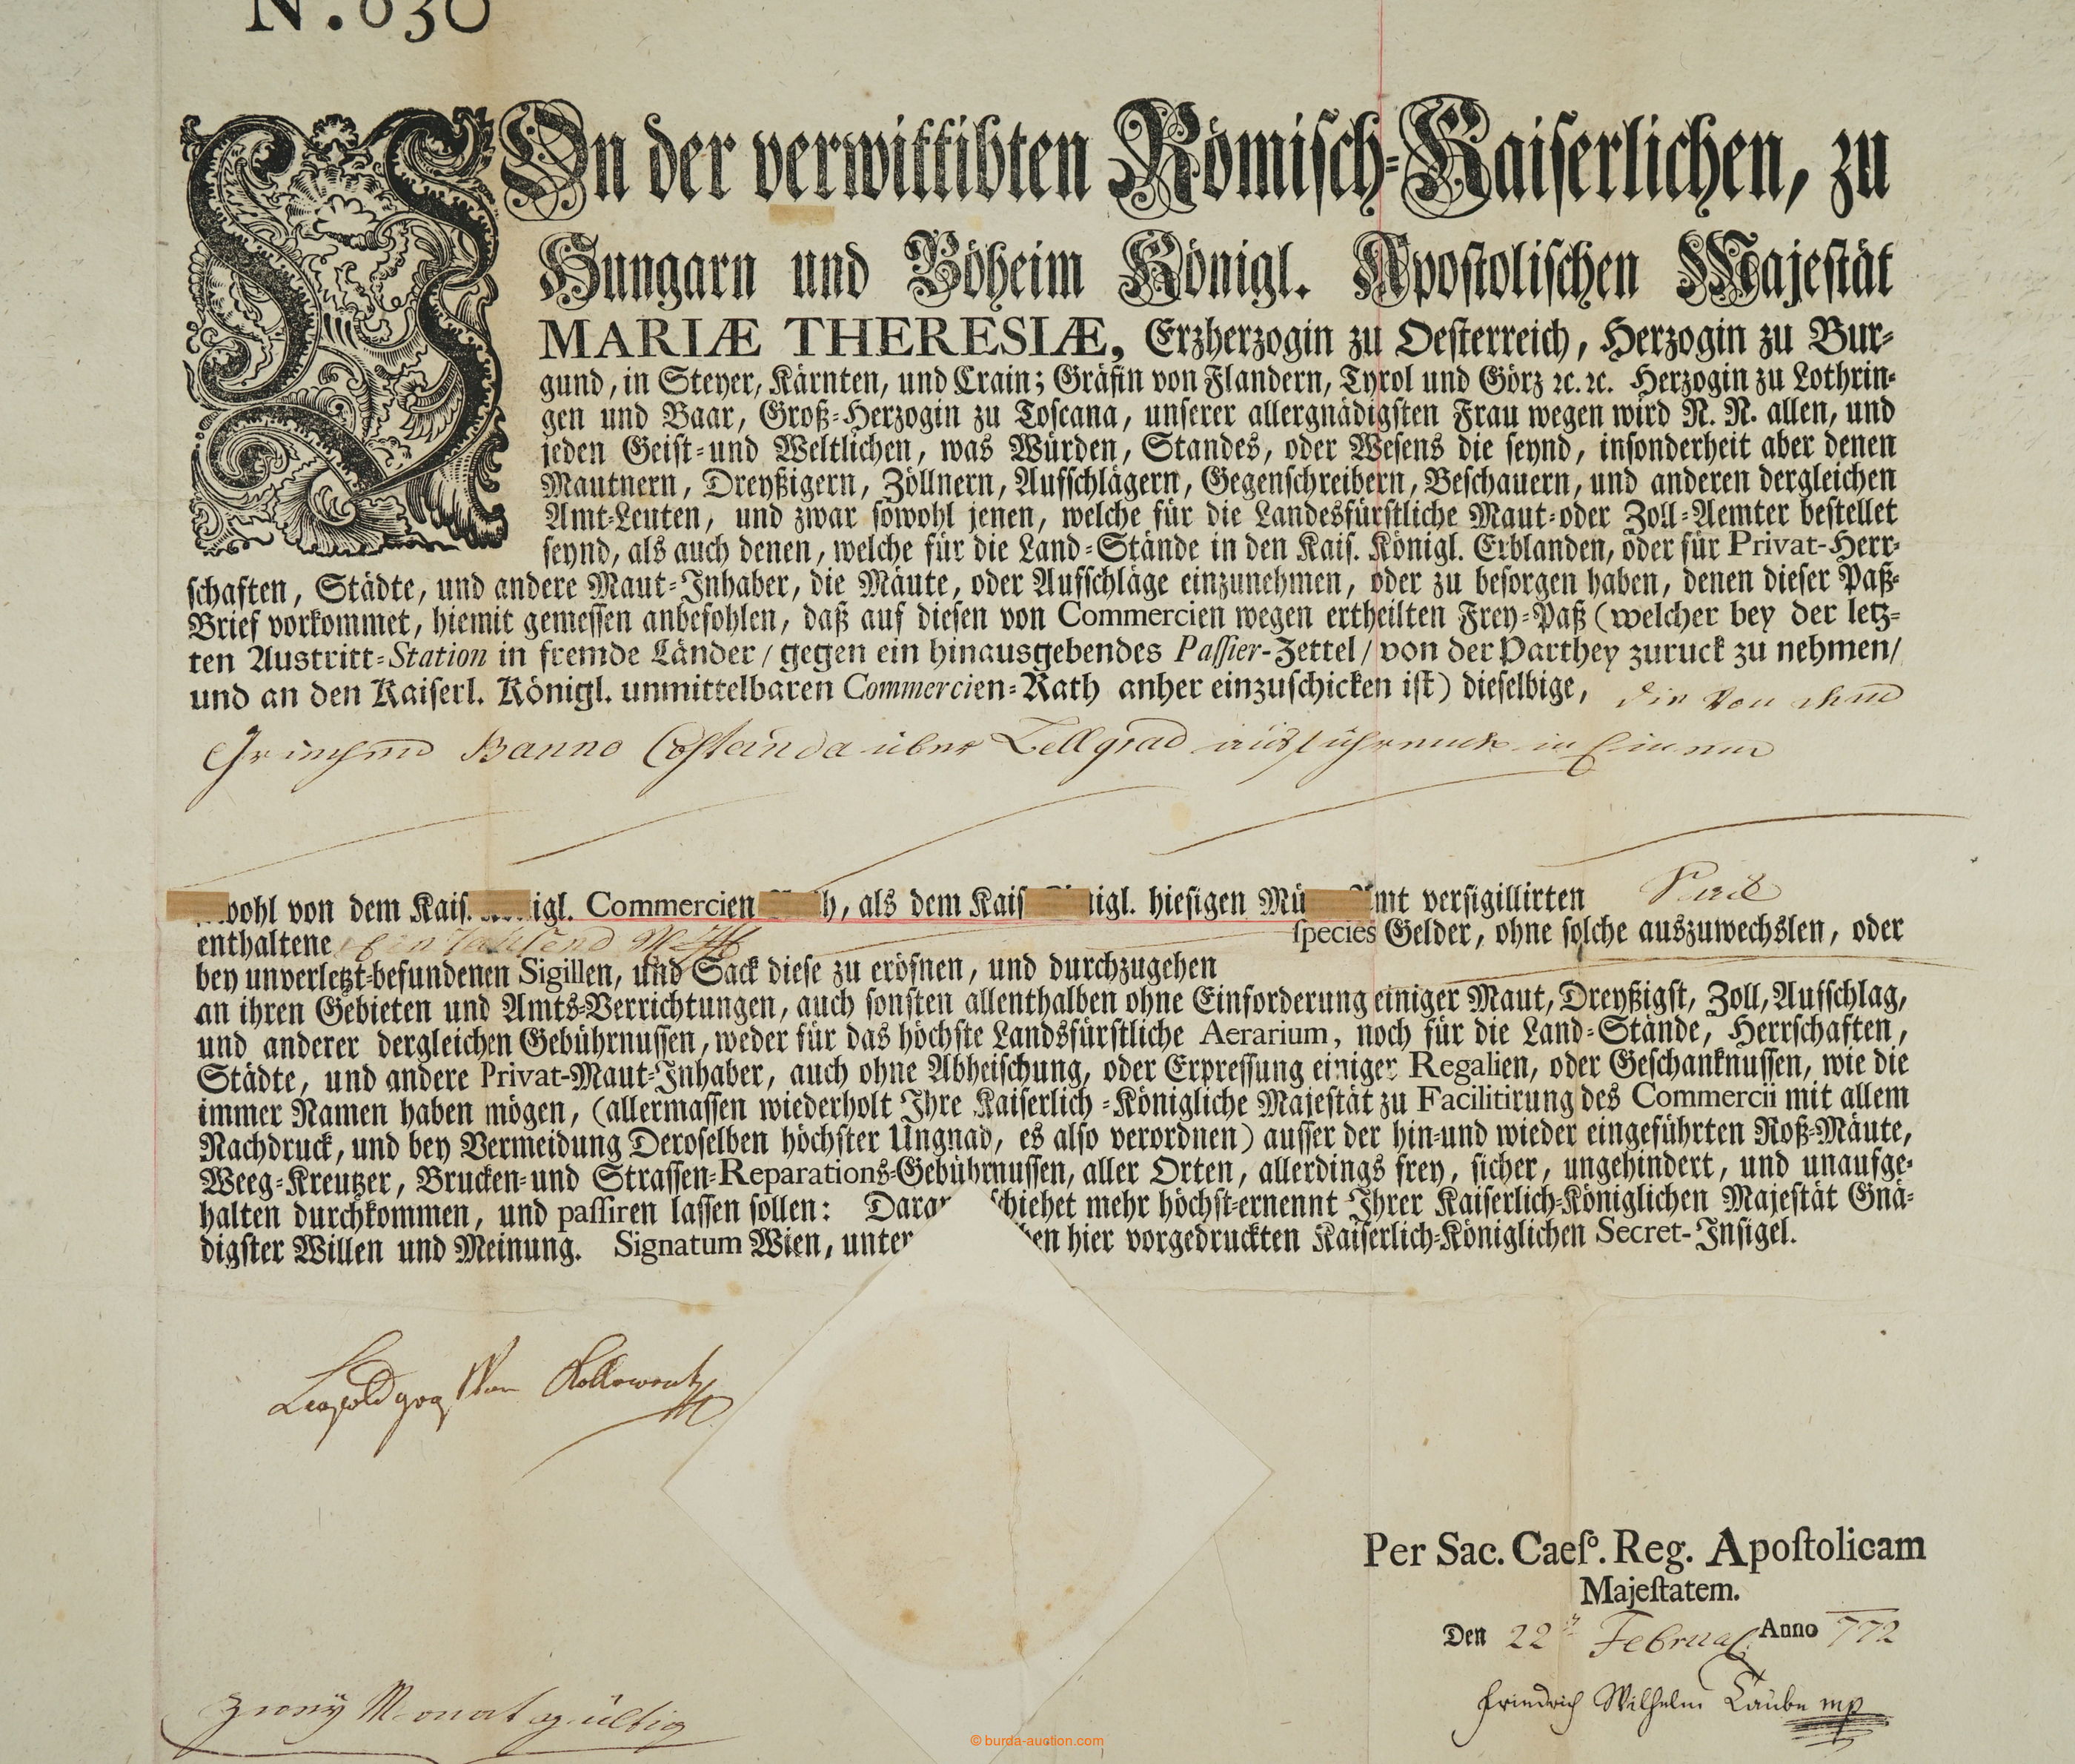 N. 630
VOn der verwittibten Römisch-Kaiserlichen, zu
Hungarn und Böheim Königl. Apostolischen Majestät
MARIÆ THERESIÆ, Erzherzogin zu Oesterreich, Herzogin zu Bur-
gund, in Steyer, Kärnten, und Crain; Gräfin von Flandern, Tyrol und Görz ꝛc. ꝛc. Herzogin zu Lothrin-
gen und Baar, Groß-Herzogin zu Toscana, unserer allergnädigsten Frau wegen wird N. N. allen, und
jeden Geist-und Weltlichen, was Würden, Standes, oder Wesens die seynd, insonderheit aber denen
Mautnern, Dreyßigern, Zöllnern, Aufschlägern, Gegenschreibern, Beschauern, und anderen dergleichen
Amt-Leuten, und zwar sowohl jenen, welche für die Landesfürstliche Maut-oder Zoll-Aemter bestellet
seynd, als auch denen, welche für die Land-Stände in den Kais. Königl. Erblanden, oder für Privat-Herr-
schaften, Städte, und andere Maut-Inhaber, die Mäute, oder Aufschläge einzunehmen, oder zu besorgen haben, denen dieser Paß-
Brief vorkommet, hiemit gemessen anbefohlen, daß auf diesen von Commercien wegen ertheilten Frey-Paß (welcher bey der letz-
ten Austritt-Station in fremde Länder / gegen ein hinausgebendes Passier-Zettel / von der Parthey zuruck zu nehmen /
und an den Kaiserl. Königl. unmittelbaren Commercien-Rath anher einzuschicken ist) dieselbige, die von dem
Griechen Banno Costanda über Zellgrad ausführende in Einem
wohl von dem Kais. igl. Commercien h, als dem Kais nigl. hiesigen Mü Amt versigillirten
enthaltene Ein Tausend species Gelder, ohne solche auszuwechslen, oder
bey unverletzt-befundenen Sigillen, und Sack diese zu eröfnen, und durchzugehen
an ihren Gebieten und Amts-Verrichtungen, auch sonsten allenthalben ohne Einforderung einiger Maut, Dreyßigst, Zoll, Aufschlag,
und anderer dergleichen Gebührnussen, weder für das höchste Landsfürstliche Aerarium, noch für die Land-Stände, Herrschaften,
Städte, und andere Privat-Maut-Inhaber, auch ohne Abheischung, oder Erpressung einiger Regalien, oder Geschanknussen, wie die
immer Namen haben mögen, (allermassen wiederholt Ihre Kaiserlich-Königliche Majestät zu Facilitirung des Commercii mit allem
Nachdruck, und bey Vermeidung Deroselben höchster Ungnad, es also verordnen) ausser der hin-und wieder eingeführten Roß-Mäute,
Weeg-Kreutzer, Brucken-und Strassen-Reparations-Gebührnussen, aller Orten, allerdings frey, sicher, ungehindert, und unaufge-
halten durchkommen, und passiren lassen sollen: Daran schiehet mehr höchst-ernennt Ihrer Kaiserlich-Königlichen Majestät Gnä-
digster Willen und Meinung. Signatum Wien, unter en hier vorgedruckten Kaiserlich-Königlichen Secret-Insigel.
Leopold von Kollowrath
Per Sac. Caesᵒ. Reg. Apostolicam
Majestatem.
Den 22 Februar Anno 772
Friedrich Wilhelm Taube mp
Zwey Monat gültig
© burda-auction.com